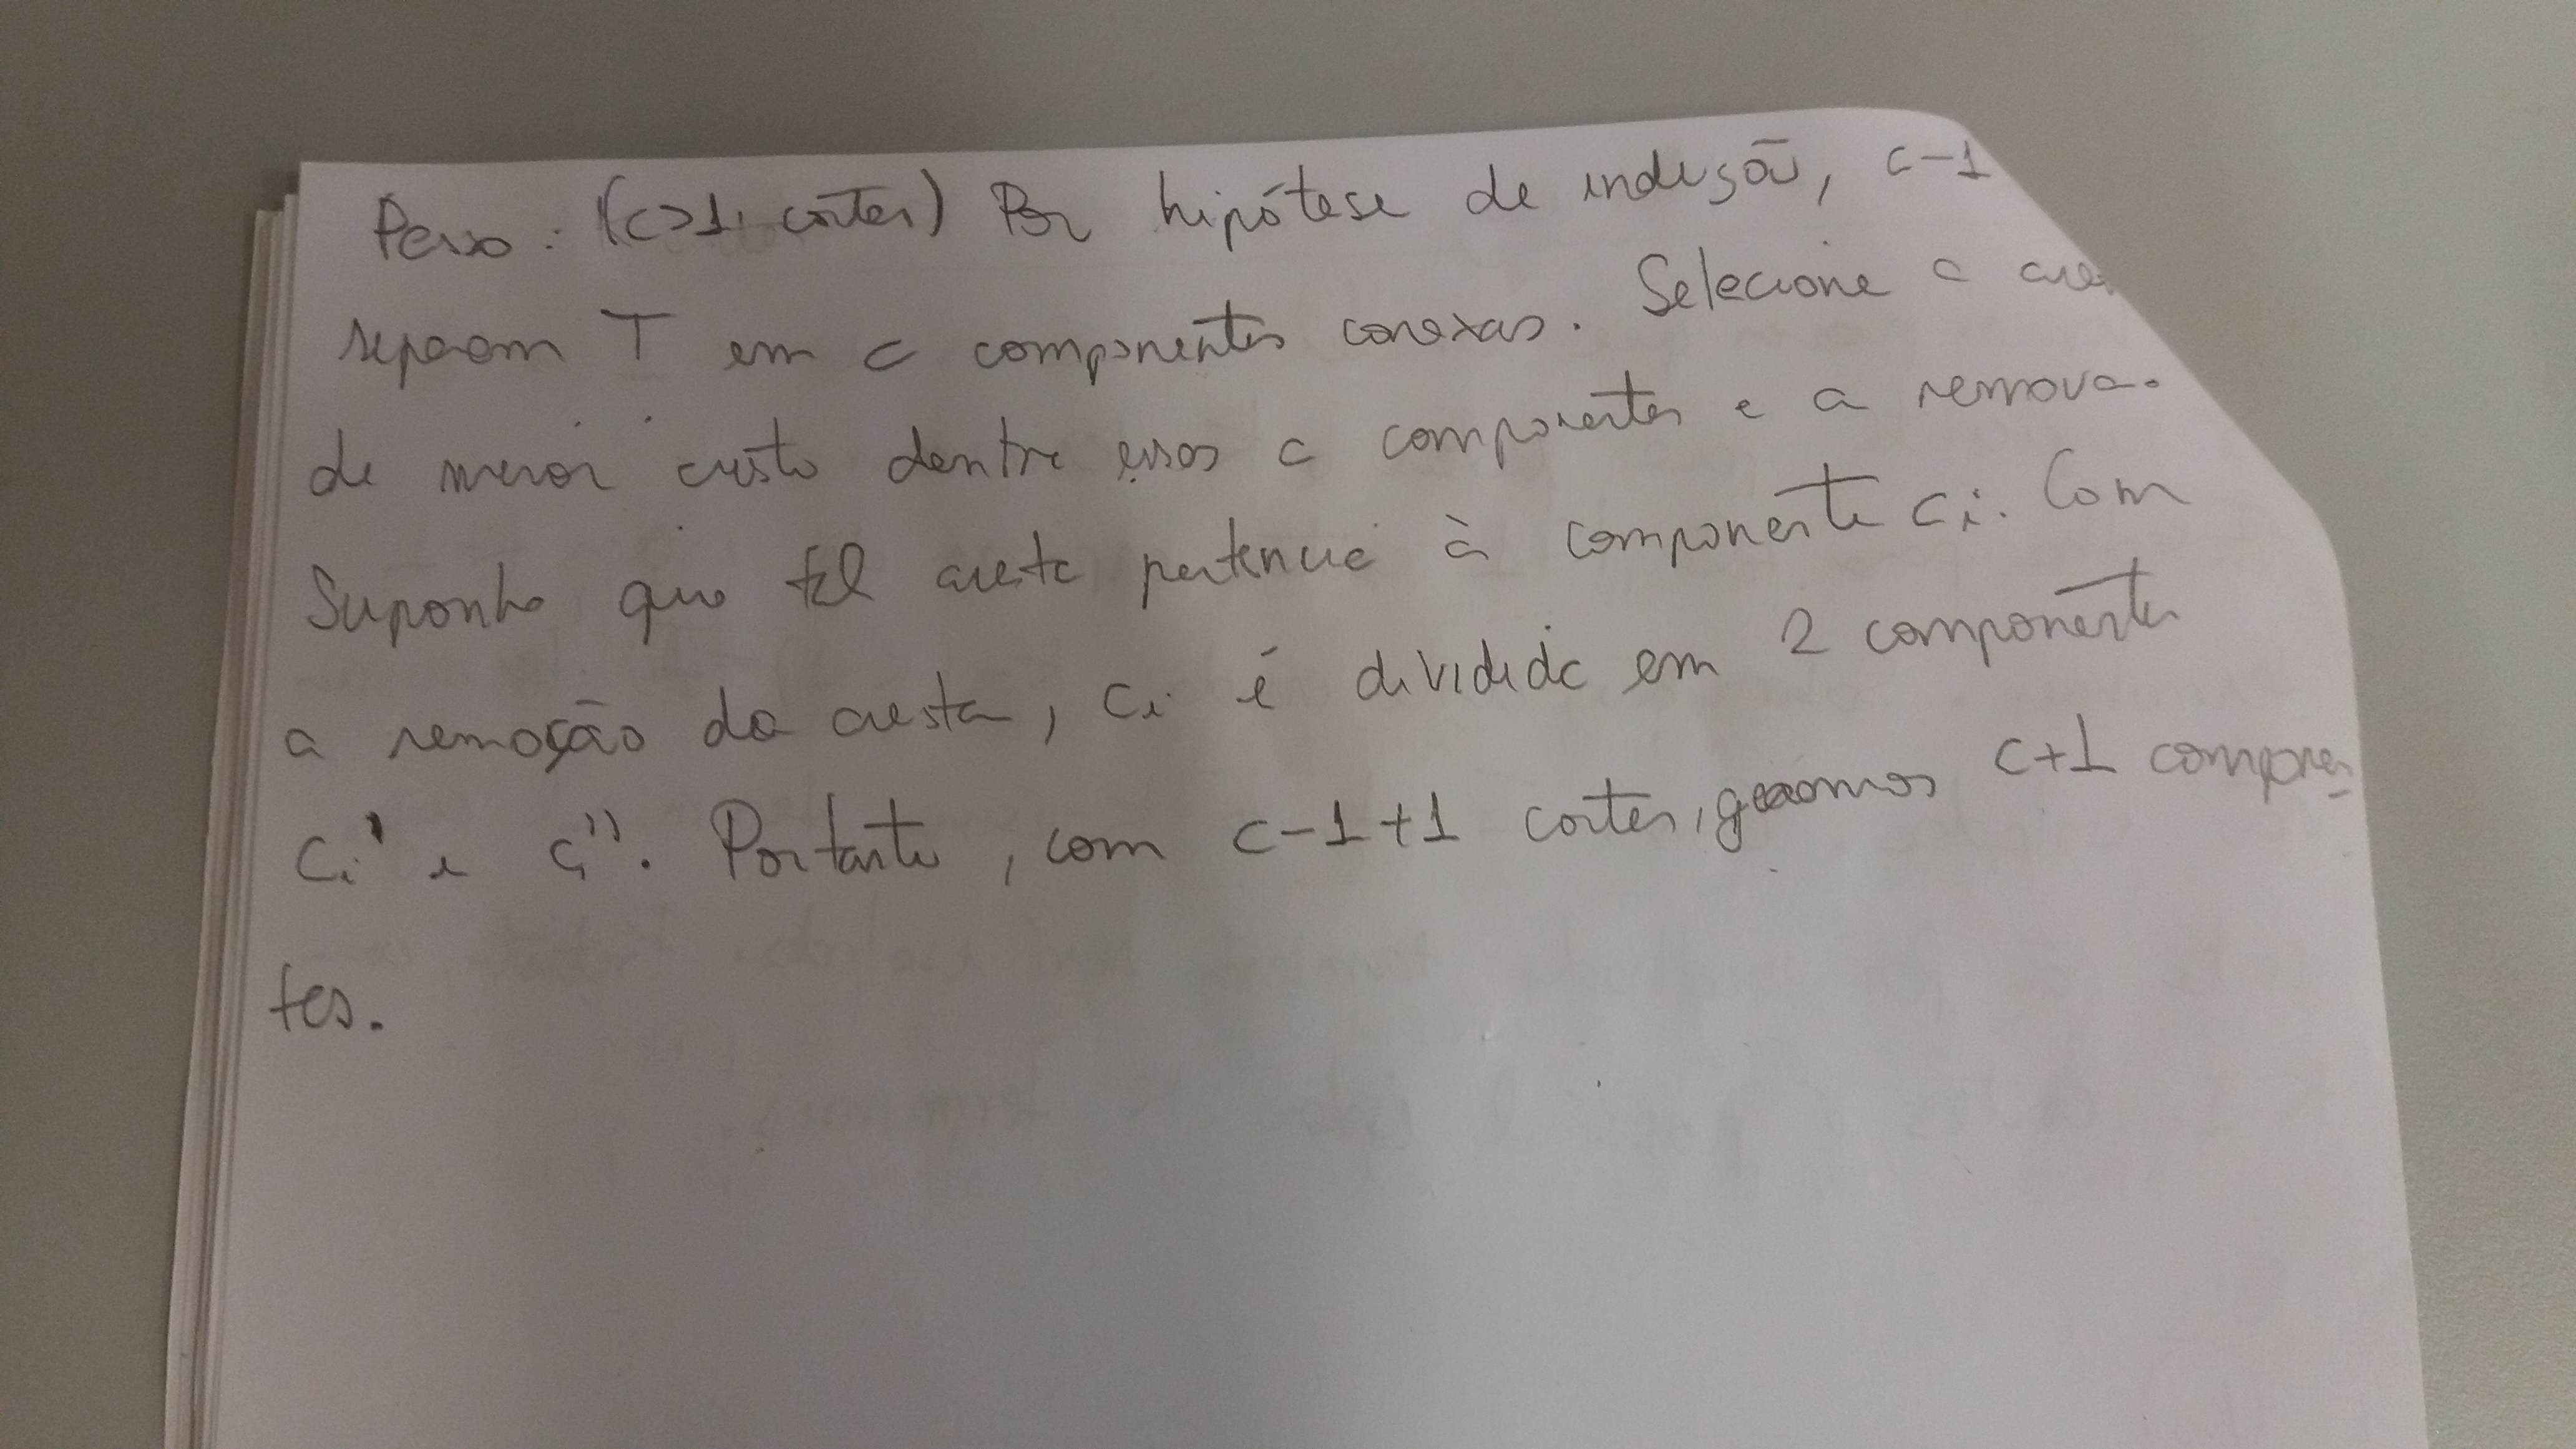 Passo: (c>1, cortes) Por hipótese de indução, c-1
separam T em c componentes conexas. Selecione a ares
de menor custo dentre essas c componentes e a remova.
Suponha que tal aresta pertencia à componente Ci. Com
a remoção da aresta, Ci é dividida em 2 componentes
Ci' e Ci''. Portanto, com c-1+1 cortes, geramos c+1 componen-
tes.